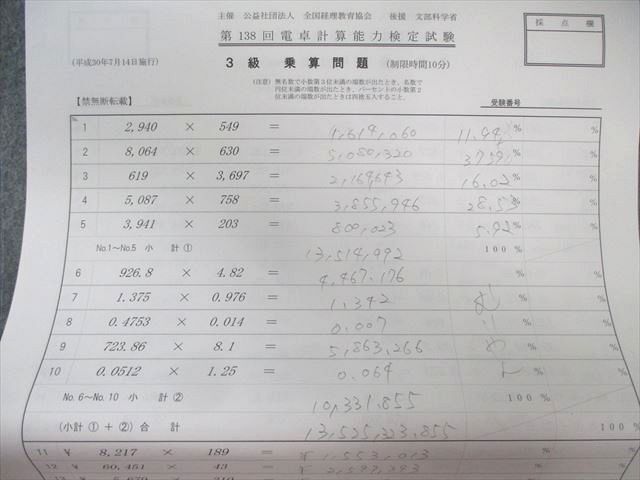 主催 公益社団法人 全国経理教育協会 後援 文部科学省
第138回電卓計算能力検定試験
採点欄
(平成30年7月14日施行)
3級 乗算問題 (制限時間10分)
(注意) 無名数で小数第3位未満の端数が出たとき、名数で
円位未満の端数が出たとき、パーセントの小数第2
位未満の端数が出たときは四捨五入すること。
【禁無断転載】
受験番号
1 2,940 × 549 = 1,614,060 11.94% %
2 8,064 × 630 = 5,080,320 37.59% %
3 619 × 3,697 = 2,164,643 16.02% %
4 5,087 × 758 = 3,855,946 28.53% %
5 3,941 × 203 = 800,023 5.92% %
No.1~No.5 小計① 13,514,992 100%
6 926.8 × 4.82 = 4,467.176 % %
7 1.375 × 0.976 = 1.342 % %
8 0.4753 × 0.014 = 0.007 % %
9 723.86 × 8.1 = 5,863.266 % %
10 0.0512 × 1.25 = 0.064 % %
No.6~No.10 小計② 10,331.855 100%
(小計①+②)合計 13,525,323.855 100%
11 ¥ 8,217 × 189 = ¥1,553,013
12 ¥ 60,451 × 43 = ¥2,599,393